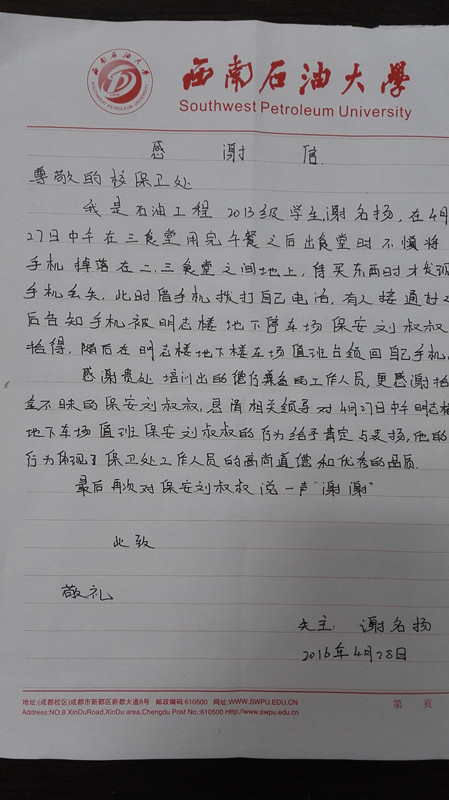 西南石油大学
SOUTHWEST PETROLEUM UNIVERSITY
西南石油大學
Southwest Petroleum University
感 谢 信
尊敬的校保卫处
我是石油工程2013级学生,谢名扬,在4月
27日中午在三食堂用完午餐之后出食堂时不慎将
手机掉落在二.三食堂之间地上,待买东西时才发现
手机丢失,此时借手机拨打自己电话,有人接通过之
后告知手机被明志楼地下停车场保安刘叔叔
拾得,随后在明志楼地下楼车场值班点领回自己手机.
感谢贵处培训出的德行兼备的工作人员,更感谢拾
金不昧的保安刘叔叔,恳请相关领导对4月27日中午明志楼
地下车场值班保安刘叔叔的行为给予肯定与表扬,他的
行为体现了保卫处工作人员的高尚道德和优秀的品质.
最后再次对保安刘叔叔说一声“谢谢”
此致
敬礼
失主: 谢名扬
2016年4月28日
地址:(成都校区)成都市新都区新都大道8号 邮政编码:610500 网址:WWW.SWPU.EDU.CN
Address:NO.8 XinDuRoad,XinDu area,Chengdu Post No.:610500 Http://www.swpu.edu.cn
第 页